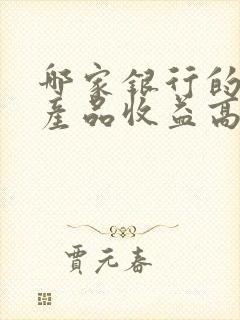 哪家银行的
產品收益高
賈元春